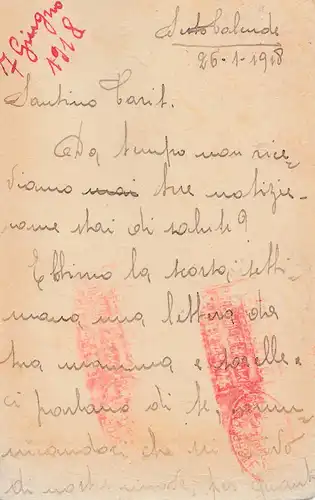 7 Giugno
1918
Sesto Calende
26-1-1918
Santino Cariss.
Da tempo non rice-
viamo mai tue notizie
come stai di salute?
Ebbimo la scorsa setti
mana una lettera da
tua mamma e sorelle e
ci parlano di te, 
che sei
di per quanto